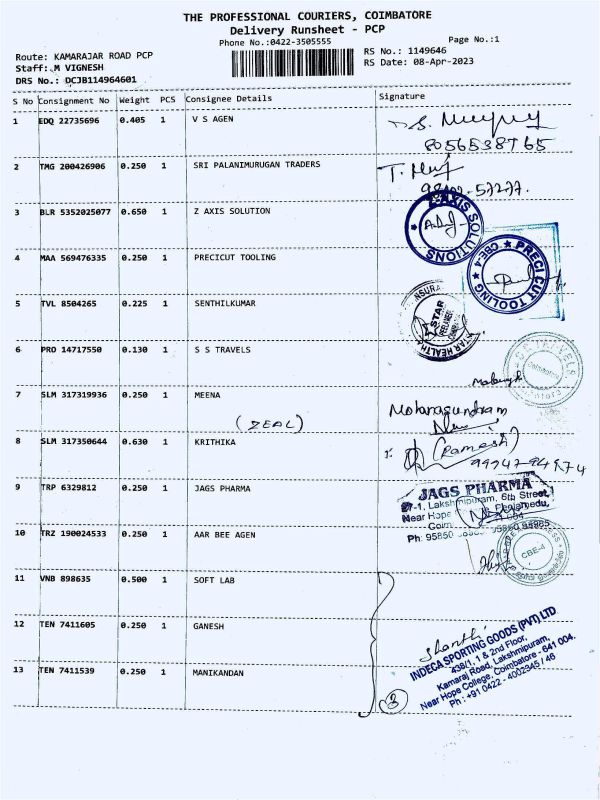 THE PROFESSIONAL COURIERS, COIMBATORE
Delivery Runsheet - PCP
Phone No.:0422-3505555
Page No.:1
Route: KAMARAJAR ROAD PCP
RS No.: 1149646
Staff: M VIGNESH
RS Date: 08-Apr-2023
DRS No.: DCJB114964601
S No Consignment No Weight PCS Consignee Details Signature
1 EDQ 22735696 0.405 1 V S AGEN
8056538765
2 TMG 200426906 0.250 1 SRI PALANIMURUGAN TRADERS
3 BLR 5352025077 0.650 1 Z AXIS SOLUTION
Z-AXIS SOLUTIONS
4 MAA 569476335 0.250 1 PRECICUT TOOLING
PRECI CUT TOOLING CBE-4
5 TVL 8504265 0.225 1 SENTHILKUMAR
STAR HEALTH
6 PRO 14717550 0.130 1 S S TRAVELS
7 SLM 317319936 0.250 1 MEENA
(ZEAL)
8 SLM 317350644 0.630 1 KRITHIKA
(Ramesh)
99947-94974
9 TRP 6329812 0.250 1 JAGS PHARMA
JAGS PHARMA
Lakshmipuram, 6th Street,
Near Hope
Peelamedu,
10 TRZ 190024533 0.250 1 AAR BEE AGEN
CBE-4
11 VNB 898635 0.500 1 SOFT LAB
12 TEN 7411605 0.250 1 GANESH
Shanthi
INDECA SPORTING GOODS (PVT) LTD
438/1, 1 & 2nd Floor,
Kamaraj Road, Lakshmipuram,
Near Hope College, Coimbatore - 641 004.
Ph : +91 0422 - 4002345 / 46
13 TEN 7411539 0.250 1 MANIKANDAN
3